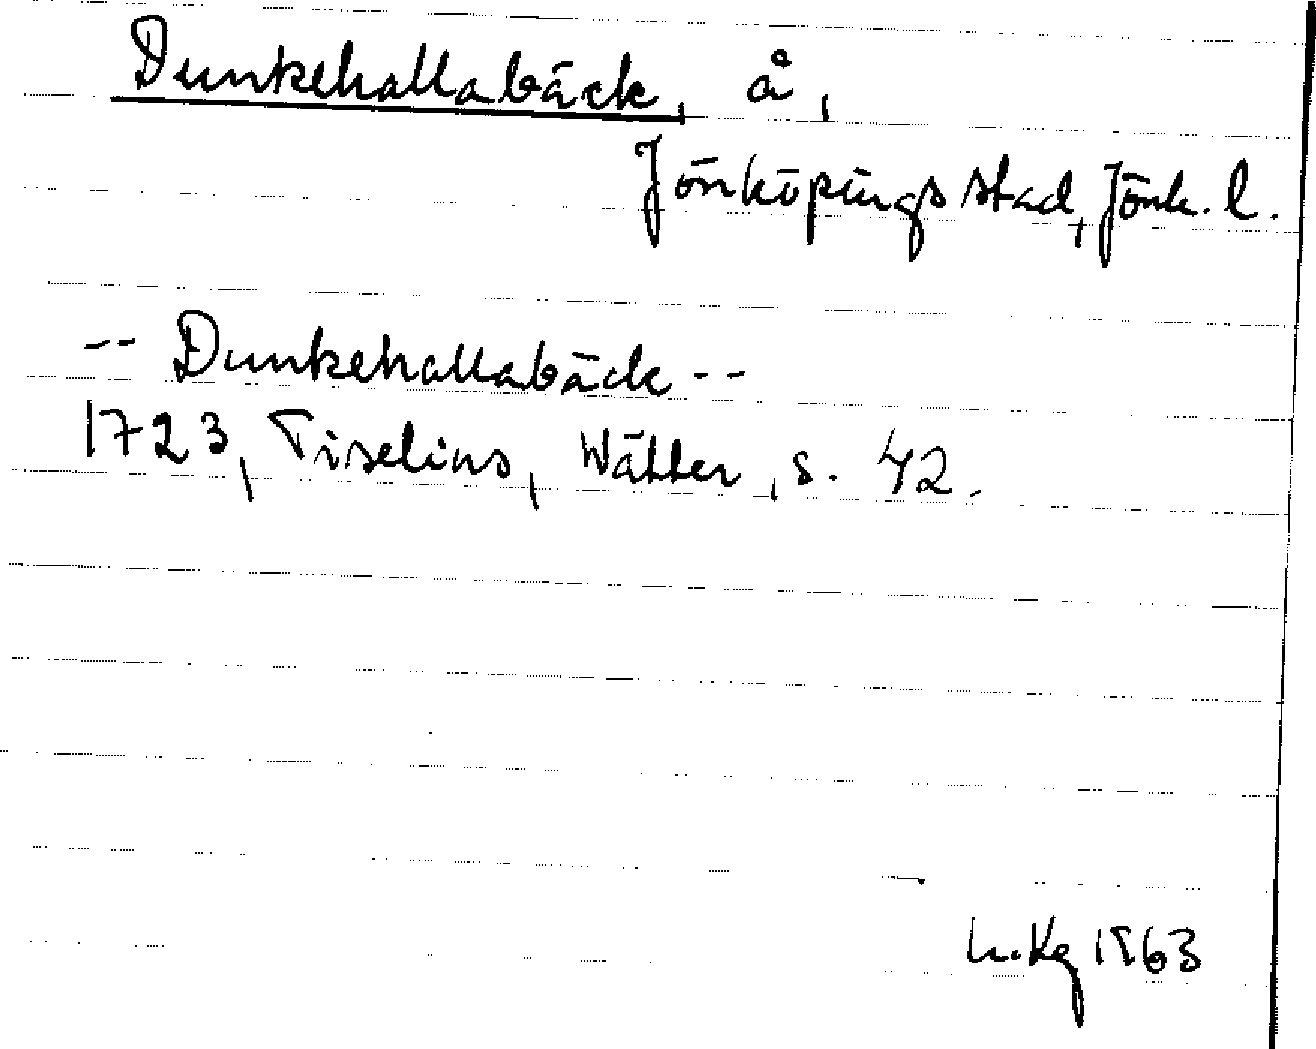 Dunkehallabäck, å,
Jönköpings stad, Jönk. l.
-- Dunkehallabäck --
1723, Tiselius, Wätter, s. 42.
1963